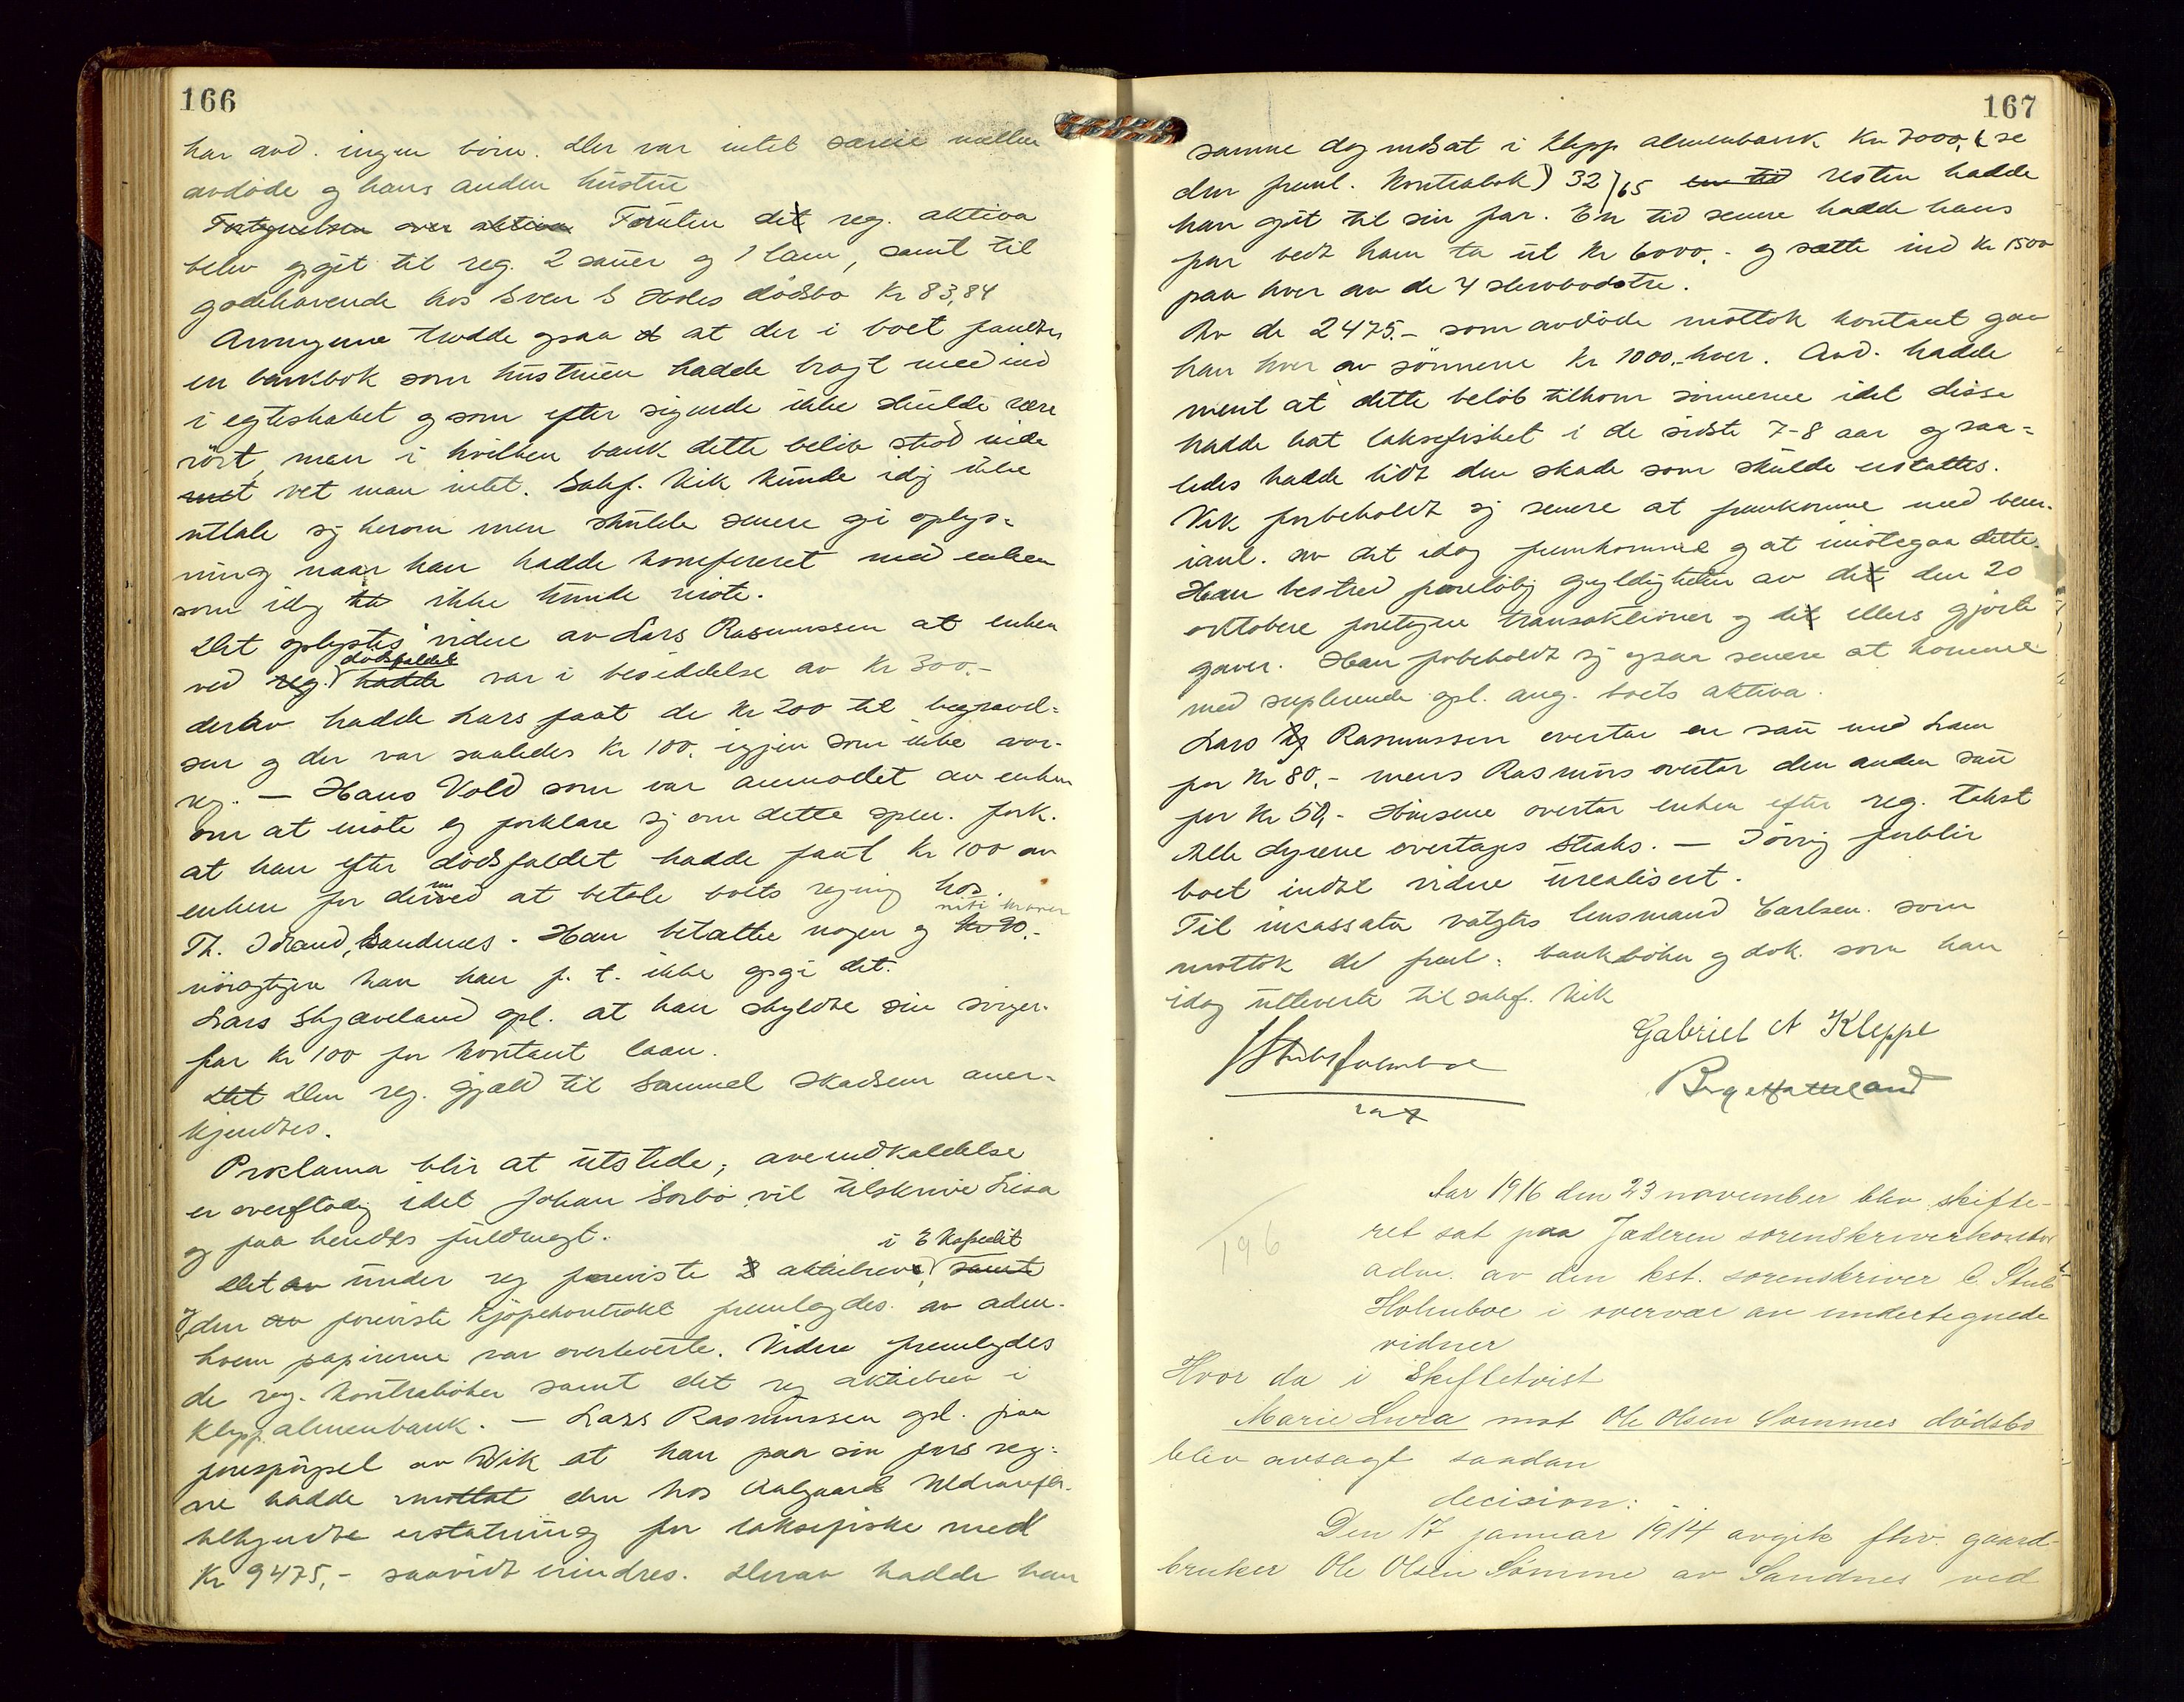 166
har avd. ingen børn. Der var intet særeie mellem
avdøde og hans anden hustru
Fortegnelsen over aktiva Foruten det reg. aktiva
blev opgit til reg. 2 sauer og 1 lam, samt til
godehavende hos Sven S Holes dødsbo Kr 83,84
Arvingerne trodde ogsaa at der i boet fandtes
en bankbok som hustruen hadde bragt med ind
i egteskabet og som efter sigende ikke skulde være
rört, men i hvilken bank dette beløb stod inde
vet man intet. Sakf. Vik kunde idag ikke
uttale sig herom men skulde senere gi oplys-
ning naar han hadde konfereret med enken
som idag ikke kunde møte.
Det oplystes videre av Lars Rasmussen at enken
ved reg. dødsfaldet hadde var i besiddelse av Kr 300.-
derav hadde Lars faat de Kr 200 til begravel-
sen og der var saaledes Kr 100. igjen som ikke var
reg. — Hans Vold som var anmodet av enken
om at møte og forklare sig om dette spm. fork.
at han efter dødsfaldet hadde faat Kr 100 av
enken for dermed at betale boets regning hos
Th. Idland, Sandnes. Han betalte nogen og nitti kroner Kr 90.-
nöiagtigere kan han f. t. ikke opgi det.
Lars Skjæveland opl. at han skyldte sin sviger-
far Kr 100 for kontant laan.
Det Den reg. gjæld til Samuel Skadsem aner-
kjendtes.
Proklama blir at utstede, arveindkaldelse
er overflødig idet Johan Sørbø vil tilskrive Lisa
og faa hendes fuldmagt.
Det av under reg foreviste aktiebrev i E Kapedit samt
og den av foreviste kjøpekontrakt fremlagdes av adm.
hvem papirerne var overleverte. Videre fremlagdes
de reg. kontrabøker samt det reg aktiebrev i
Klepp almenbank. — Lars Rasmussen opl. paa
forespörgsel av Wik at han paa sin fars veg-
ne hadde mottat den hos Aalgaard Uldvarefabr.
tilkjendte erstatning for laksefiske med
Kr 9475,- saavidt erindres. Derav hadde han
167
samme dag indsat i Klepp almenbank Kr 7000, (se
den freml. Kontrabok) 32/65 en tid resten hadde
han git til sin far. En tid senere hadde hans
far bedt ham ta ut Kr 6000.- og sætte ind Kr 1500
paa hver av de 4 sterbodøtre.
Av de 2475.- som avdøde mottok kontant gav
han hver av sønnerne Kr 1000.- hver. Avd. hadde
ment at dette beløb tilkom sønnerne idet disse
hadde hat laksefisket i de sidste 7-8 aar og saa-
ledes hadde lidt den skade som skulde erstattes.
Vik forbeholdt sig senere at fremkomme med bem.
ianl. av det idag fremkomne og at imøtegaa dette.
Han bestred foreløbig gyldigheten av det den 20
oktober foretagne transaktioner og det ellers gjorte
gaver. Han forbeholdt sig ogsaa senere at komme
med suplerende opl. ang. boets aktiva.
Lars Rasmussen overtar en sau med Lam
for Kr 80.- mens Rasmus overtar den anden sau
for Kr 50,- Hønsene overtar enken efter reg. takst
Alle dyrene overtages straks. — Iøvrig forblir
boet indtil videre urealisert.
Til incassator valgtes lensmand Carlsen som
mottok de freml. bankbøker og dok. som han
idag utleverte til sakf. Vik
Gabriel A Kleppe
Stub Holmboe
Berge Hatteland
196
Aar 1916 den 23 november blev skifte-
ret sat paa Jæderen sorenskriverkontor
adm. av den kst. sorenskriver C. Stub
Holmboe i overvær av undertegnede
vidner
Hvor da i Skiftetvist
Marie Lura mot Ole Olsen Sømmes dødsbo
blev avsagt saadan
decision:
Den 17 januar 1914 avgik fhv. gaard-
bruker Ole Olsen Sømme av Sandnes ved